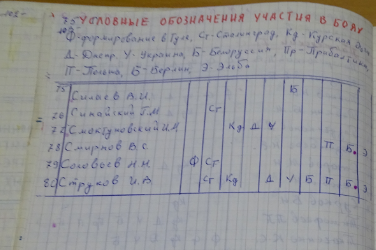 УСЛОВНЫЕ ОБОЗНАЧЕНИЯ УЧАСТИЯ В БОЯХ
Ф-формирование в Туле, Ст-Сталинград, Кд-Курская дуга
Д-Днепр У-Украина, Б-Белоруссия, Пр-Прибалтика
П-Польша, Б-Берлин, Э-Эльба
75 Силаев В.И. Б
76 Синайский Г.М. Ст
77 Смоктуновский И.М. Кд Д У
78 Смирнов В.С. П Б. Э
79 Соловьев Н.Н. Ф Ст
80 Струков И.Д. Ст Кд Д У Б П Б. Э